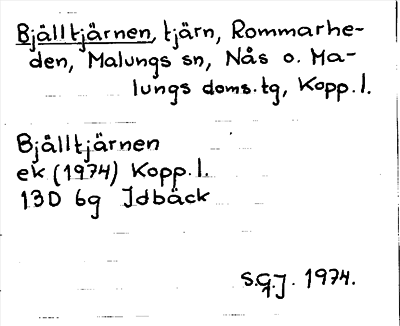 Bjälltjärnen, tjärn, Rommarhe-
den, Malungs sn, Nås o. Ma-
lungs doms.tg, Kopp.l.
Bjålltjärnen
ek (1974) Kopp.l.
13D 6g Idbäck
S.G.J. 1974.